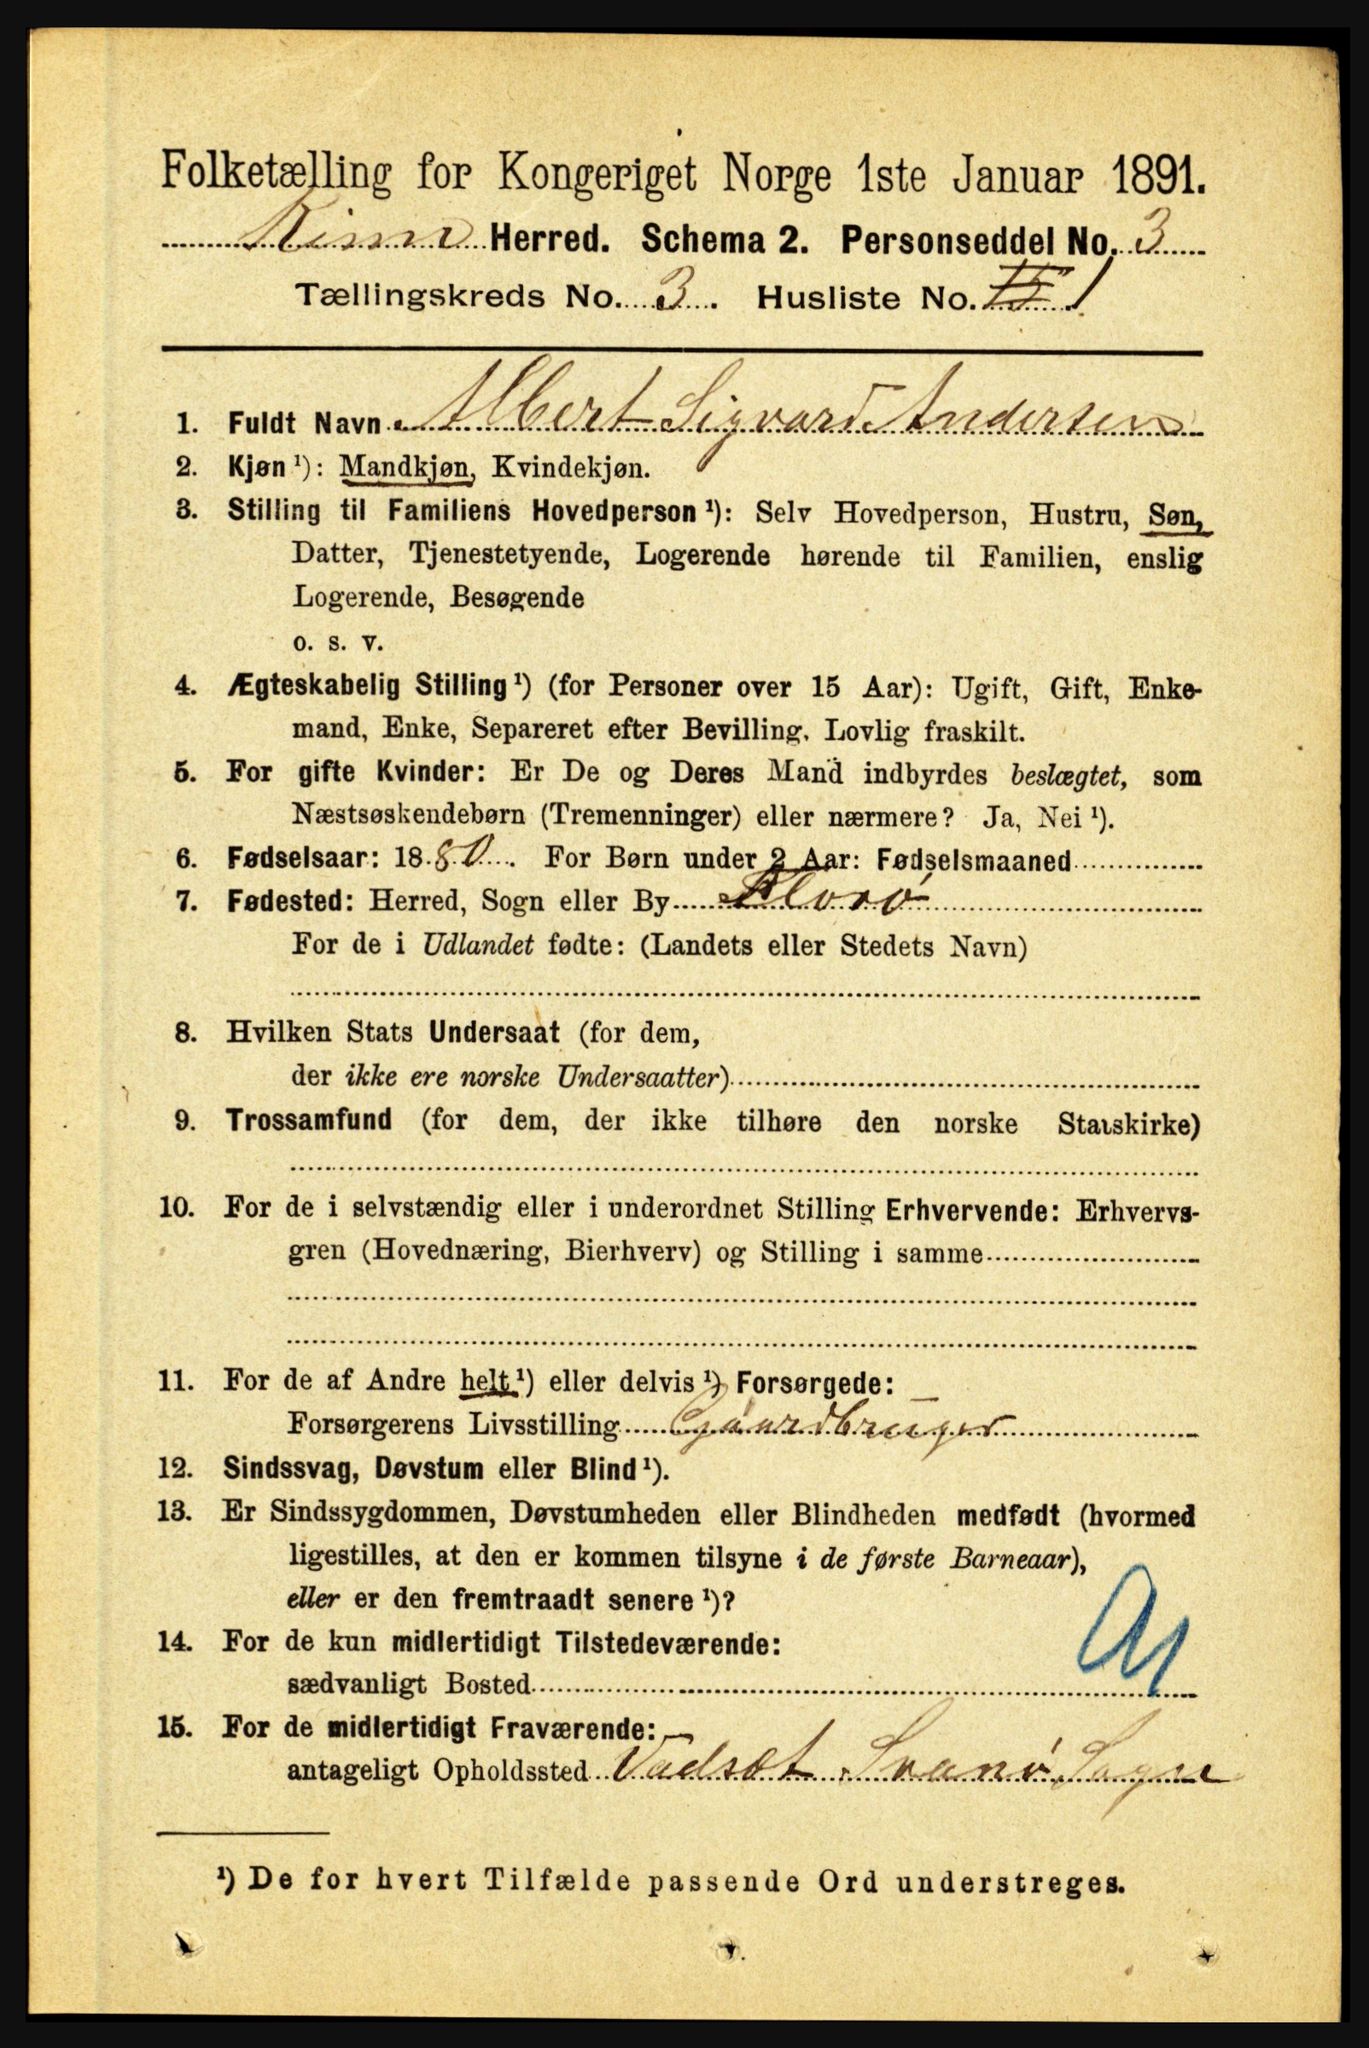 Folketælling for Kongeriget Norge 1ste Januar 1891.
Kinn Herred. Schema 2. Personseddel No. 3
Tællingskreds No. 3. Husliste No. 1
1. Fuldt Navn Albert Sigvard Andersen
2. Kjøn ¹): Mandkjøn, Kvindekjøn.
3. Stilling til Familiens Hovedperson ¹): Selv Hovedperson, Hustru, Søn,
Datter, Tjenestetyende, Logerende hørende til Familien, enslig
Logerende, Besøgende
o. s. v.
4. Ægteskabelig Stilling ¹) (for Personer over 15 Aar): Ugift, Gift, Enke-
mand, Enke, Separeret efter Bevilling. Lovlig fraskilt.
5. For gifte Kvinder: Er De og Deres Mand indbyrdes beslægtet, som
Næstsøskendebørn (Tremenninger) eller nærmere? Ja, Nei ¹).
6. Fødselsaar: 1880. For Børn under 2 Aar: Fødselsmaaned
7. Fødested: Herred, Sogn eller By Florø
For de i Udlandet fødte: (Landets eller Stedets Navn)
8. Hvilken Stats Undersaat (for dem,
der ikke ere norske Undersaatter)
9. Trossamfund (for dem, der ikke tilhøre den norske Statskirke)
10. For de i selvstændig eller i underordnet Stilling Erhvervende: Erhvervs-
gren (Hovednæring, Bierhverv) og Stilling i samme
11. For de af Andre helt ¹) eller delvis ¹) Forsørgede:
Forsørgerens Livsstilling Gaardbruger
12. Sindssvag, Døvstum eller Blind ¹).
13. Er Sindssygdommen, Døvstumheden eller Blindheden medfødt (hvormed
ligestilles, at den er kommen tilsyne i de første Barneaar),
eller er den fremtraadt senere ¹)?
14. For de kun midlertidigt Tilstedeværende:
sædvanligt Bosted
15. For de midlertidigt Fraværende:
antageligt Opholdssted Vadsæt Svanø Sogn
¹) De for hvert Tilfælde passende Ord understreges.